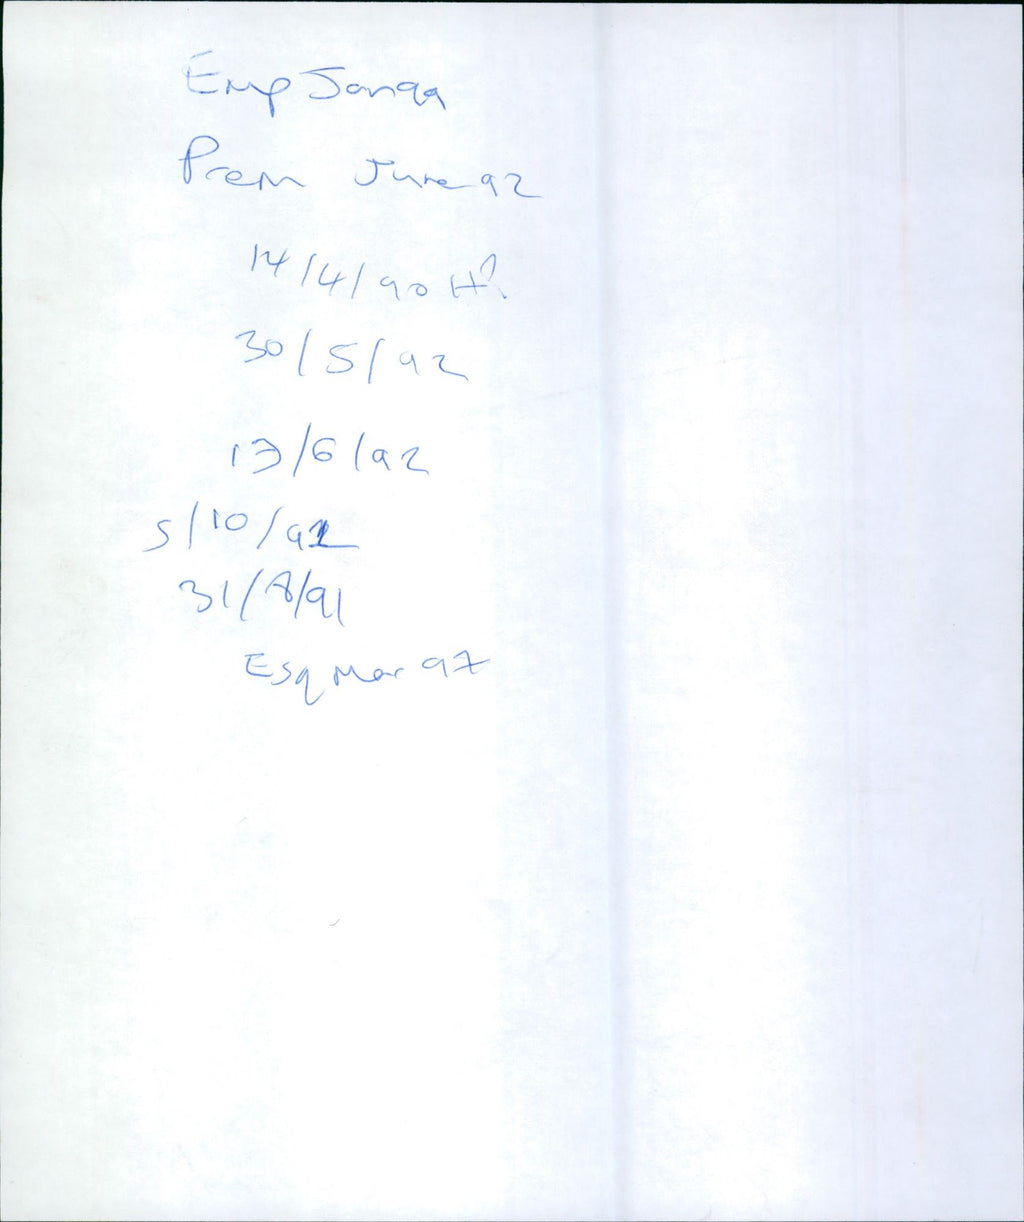 Emp Jan 99
Prem June 92
14/4/90 H?
30/5/92
13/6/92
5/10/92
31/8/91
Esq Mar 97